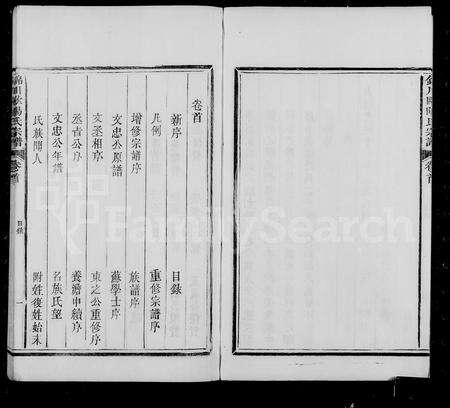 錦川歐陽氏宗譜 卷首
卷首
新序 目錄
凡例 重修宗譜序
增修宗譜序 族譜序
文忠公原譜 蘇學士序
文丞相序 東之公重修序
公序 養澹申續序
文忠公年譜 名族氏望
氏族聞人 附姓復姓始末
錦川歐陽氏宗譜 卷首 目錄 一
FamilySearch